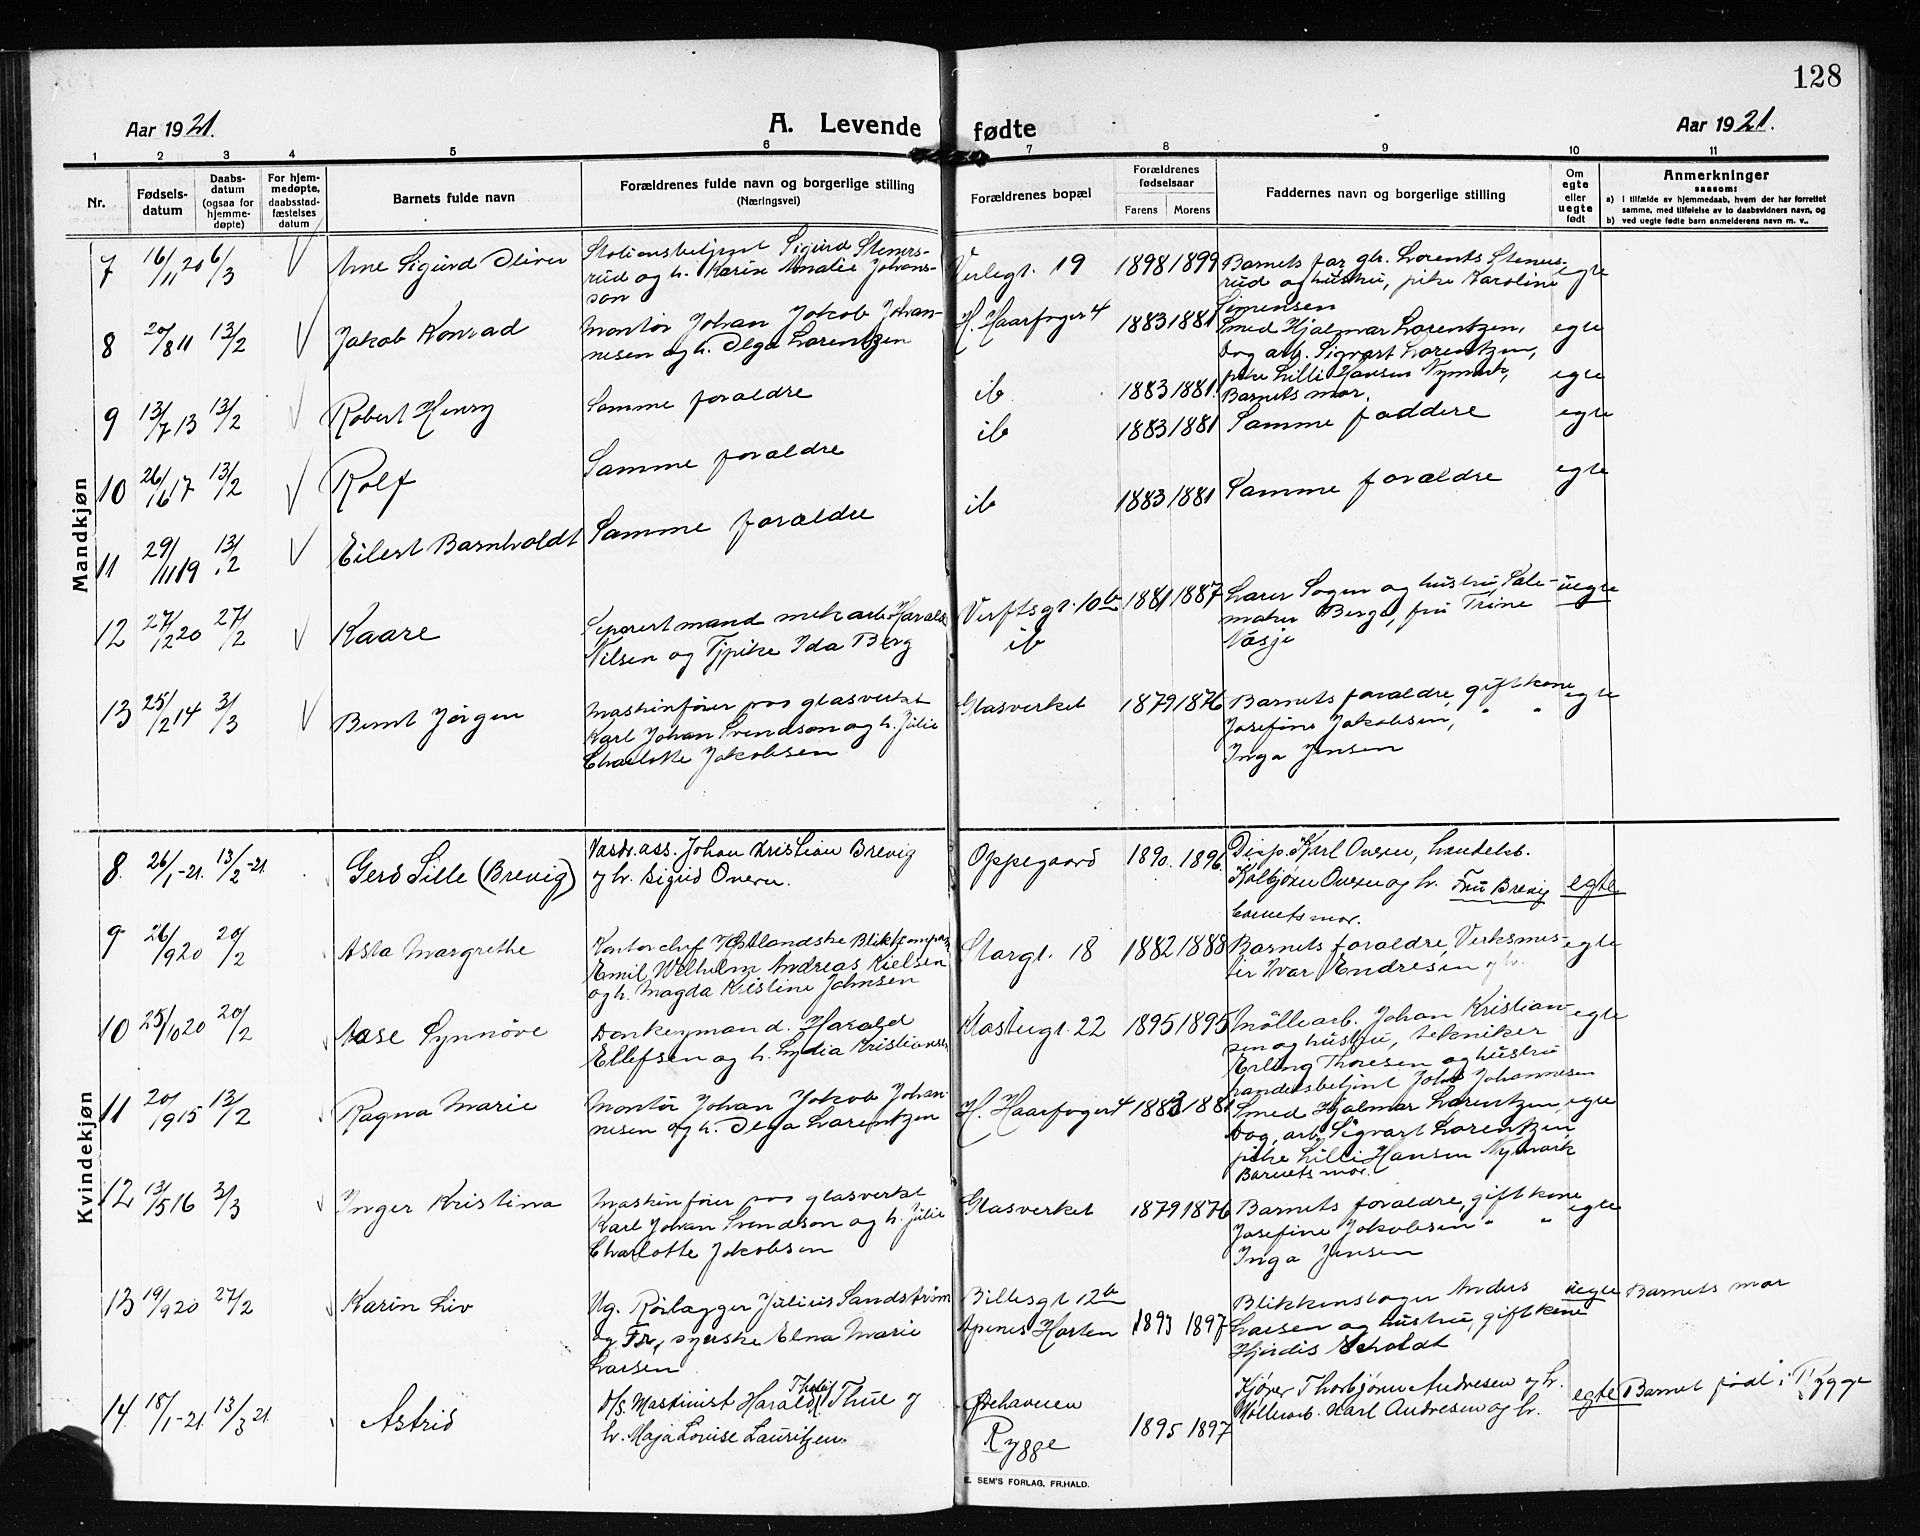 128
Aar 1921.
A. Levende fødte
Aar 1921.
1 2 3 4 5 6 7 8 9 10 11
Nr.
Fødsels-
datum
Daabs-
datum
(ogsaa for
hjemme-
døpte)
For hjem-
medøpte,
daabsstad-
fæstelses
datum
Barnets fulde navn
Forældrenes fulde navn og borgerlige stilling
(Næringsvei)
Forældrenes bopæl
Forældrenes
fødselsaar
Farens Morens
Faddernes navn og borgerlige stilling
Om
egte
eller
uegte
født
Anmerkninger
sansom:
a) I tilfælde av hjemmedaab, hvem der har forrettet
samme, med tilføielse av to daabsvidners navn, og
b) ved uegte fødte barn anmelderens navn m. v.,
Mandkjøn
7 16/11 20 6/3 Arne Sigurd Oliver
Stationsbetjent Sigurd Steners-
rud og h. Karin Amalie Johans-
son
Verlegt. 19 1898 1899
Barnets far, glv. Lorents Steners-
rud og hustru, pike Karoline
Simensen
egte
8 20/8 11 13/2 Jakob Konrad
Montør Johan Jakob Johan-
nesen og h. Olga Lorentzen
H. Haarfagergt 4 1883 1881
Smed Hjalmar Lorentzen,
Dog arb. Sigvart Lorentzen,
pike Lilli Hansen Nymark,
Barnets mor.
egte
9 13/7 13 13/2 Robert Henry
Samme foraldre
ib 1883 1881.
Samme faddere
egte
10 26/6 17 13/2 Rolf
Samme foraldre
ib 1883 1881
Samme foraldre
egte
11 29/11 19 13/2 Eilert Barnholdt
Samme foraldre
ib 1883 1881
egte
12 27/2 20 27/2 Kaare
Seperert mand mek arb. Harald
Nilsen og Tjpike Ida Berg
Verftsgt. 10b
ib
1881 1887
Larer Sogen og hustru, Sale-
maker Berge, fru Trine
Næsje
uegte
13 25/2 14 3/3 Bernt Jørgen
Maskinfører paa glasverket
Karl Johan Svendson og h. Julie
Charlotte Jakobsen
Glasverket 1879 1876
Barnets foraldre, gift kone
Josefine Jakobsen, " "
Inga Jensen
egte
Kvindekjøn
8. 26/1-21. 13/2-21. Gerd Lille (Brevig)
Vasdr. ass. Johan Kristian Brevig
og h. Sigrid Overn.
Oppegaard 1890. 1896.
Disp. Karl Overn, handelsb.
Kolbjørn Overn og h. Fru Brevig
barnets mor.
egte
9 26/9 20 20/2 Asta Margrethe
Kontorchef Østlandske Blikkompani
Emil Wilhelm Andreas Kielsen
og h. Magda Kristine Johnsen
Storgt. 18 1882 1888
Barnets foraldre, Verksmes-
ter Ivar Endresen og h.
egte
10 25/10 20 20/2 Aase Synnøve
Donkeymand. Harald
Ellefsen og h. Lydia Kristiansen
Klostergt. 22 1895 1895
Møllearb. Johan Kristian-
sen og hustru, tekniker
Erling Thoresen og hustru
handelsbetjent Johs Johannesen
egte
11 20/9 15 13/2 Ragna Marie
Montør Johan Jakob Johan-
nesen og h. Olga Lorentzen
H. Haarfagergt 4 1883 1881
Smed Hjalmar Lorentzen,
Dog. arb. Sigvart Lorentzen,
pike Lilli Hansen Nymark
Barnets mor.
egte
12 13/5 16 3/3 Inger Kristina
Maskinfører paa glasverket
Karl Johan Svendson og h. Julie
Charlotte Jakobsen
Glasverket 1879 1876
Barnets foraldre, gift kone
Josefine Jakobsen " "
Inga Jensen
egte
13 19/9 20 27/2 Karin Liv
Ug. Rørlægger Julius Sandstrøm
og Fr., syerske Elna Marie
Larsen
Billesgt 12b
Apenes Horten
1893 1897
Blikkenslager Anders
Larsen og hustru, gift kone
Hjørdis Scholdt
uegte
Barnets mor
14. 18/1-21. 13/3 21. Astrid
D/S. Maskinist Harald Thorleif Thue og
h. Maja Louise Lauritzen.
Ørehavnen
Rygge
1895 1897
Kjører Thorbjørn Andresen og h.
Møllearb. Karl Andresen og h.
egte
Barnet født i Rygge
E. SEM'S FORLAG, FR.HALD.